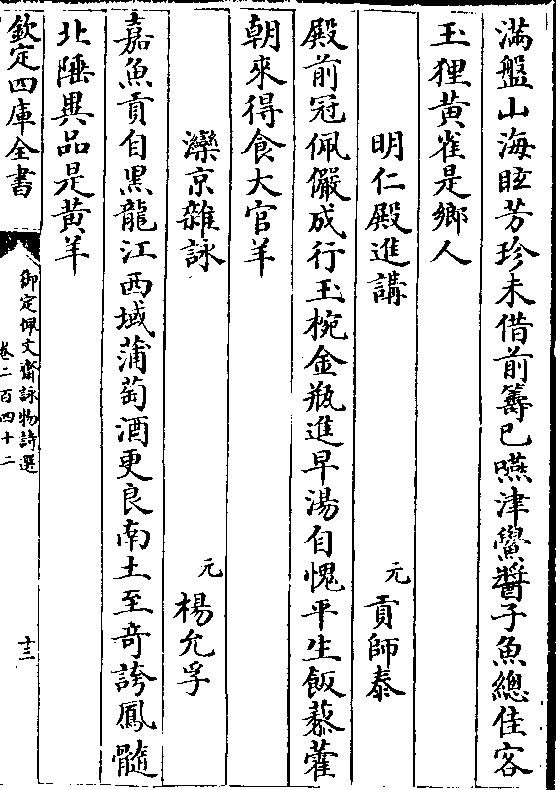 滿盤山海眩芳珍未借前籌已嚥津鱟醬子魚總佳客
玉狸黄雀是鄉人
明仁殿進講
元
貢師泰
殿前冠佩儼成行玉椀金瓶進早湯自愧平生飯藜藿
朝來得食大官羊
灤京雜詠
元
楊允孚
嘉魚貢自黑龍江西域蒲萄酒更良南土至竒誇鳳髓
北陲異品是黄羊
欽定四庫全書
御定佩文齋詠物詩選
卷二百四十二
十三